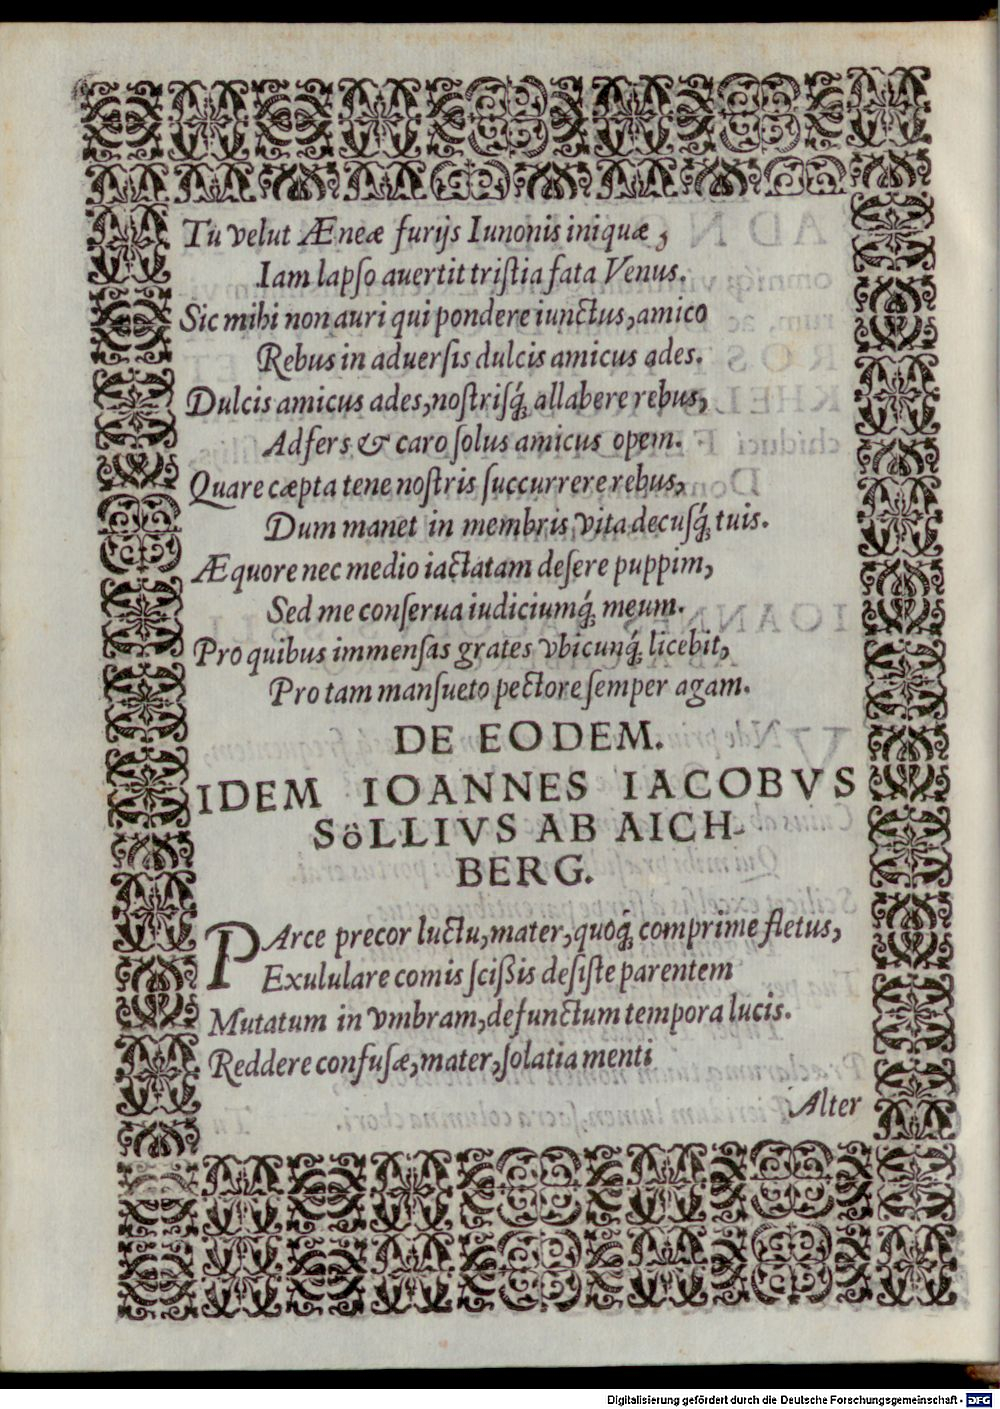 Tu velut Æneæ furijs Iunonis iniquæ,
Iam lapſo auertit triſtia fata Venus.
Sic mihi non auri qui pondere iunctus, amico
Rebus in aduerſis dulcis amicus ades.
Dulcis amicus ades, noſtriſq́; allabere rebus,
Adfers & caro ſolus amicus opem.
Quare cæpta tene noſtris ſuccurrere rebus,
Dum manet in membris vita decuſq́; tuis.
Æquore nec medio iactatam deſere puppim,
Sed me conſerua iudiciumq́; meum.
Pro quibus immenſas grates vbicunq́; licebit,
Pro tam manſueto pectore ſemper agam.
DE EODEM.
IDEM IOANNES IACOBVS
SöLLIVS AB AICH-
BERG.
PArce precor luctu, mater, quoq́; comprime fletus,
Exululare comis ſcißis deſiſte parentem
Mutatum in vmbram, defunctum tempora lucis.
Reddere confuſæ, mater, ſolatia menti
Alter
Digitalisierung gefördert durch die Deutsche Forschungsgemeinschaft - DFG